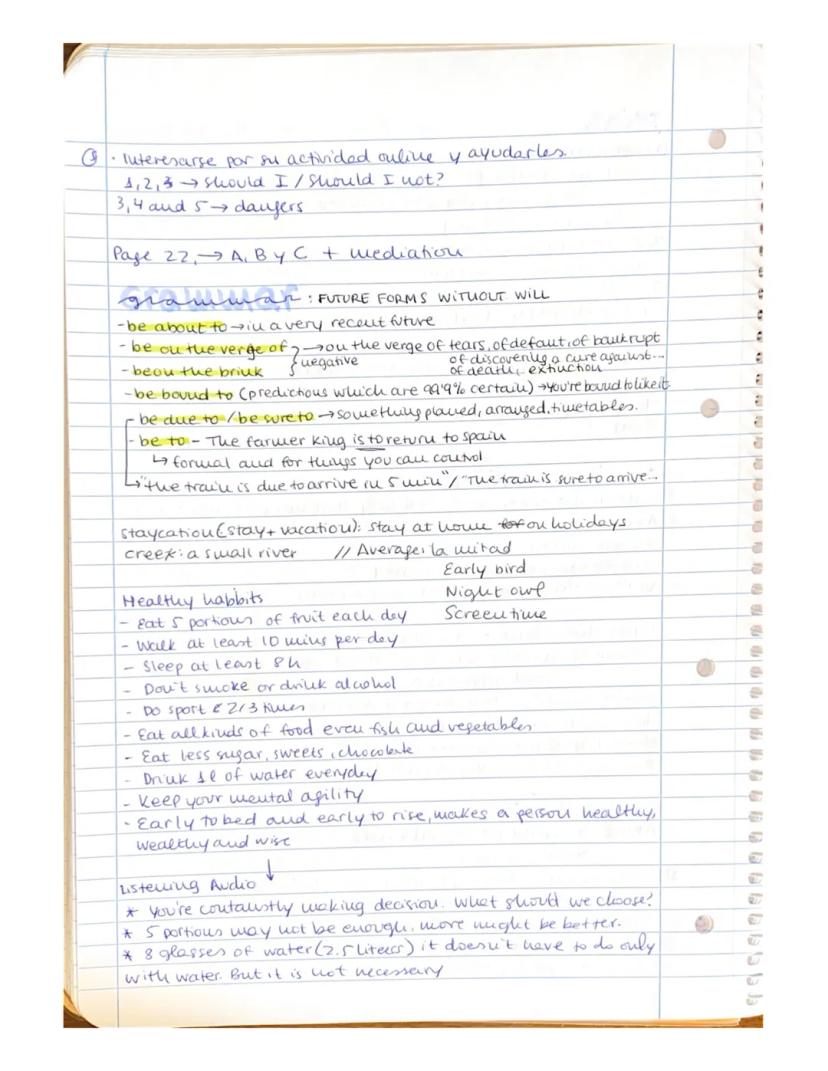 · Interesarse por su actividad online y ayudarles.
1,2,3 → should I / should I not?
3,4 and 5 → dangers
Page 22, → A, B y C + mediation
grammar : FUTURE FORMS WITHOUT WILL
- be about to → in a very recent future
- be on the verge of } → on the verge of tears, of defaut, of bankrupt
- be on the brink } negative of discovering a cure against...
of death, extinction
- be bound to (predictions which are 99'9% certain) → you're bound to like it
- be due to / be sure to → something planed, arranged, timetables.
- be to - The farmer king is to return to Spain
↳ formal and for things you can control
↳ "the train is due to arrive in 5 min" / "The train is sure to arrive...
staycation (stay + vacation): stay at home for on holidays
creek: a small river // Average: la mitad
Early bird
Night owl
Healthy habbits
- Eat 5 portions of fruit each day Screen time
- Walk at least 10 mins per day
- Sleep at least 8h
- Don't smoke or drink alcohol
- Do sport 2/3 times
- Eat all kinds of food even fish and vegetables
- Eat less sugar, sweets, chocolate
- Drink 1l of water everyday
- Keep your mental agility
- Early to bed and early to rise, makes a person healthy,
wealthy and wise
↓
Listening Audio
* You're contanstly making decision. What should we choose?
* 5 portions may not be enough, more might be better.
* 8 glasses of water (2.5 liters) it doesn't have to do only
with water. But it is not necessary